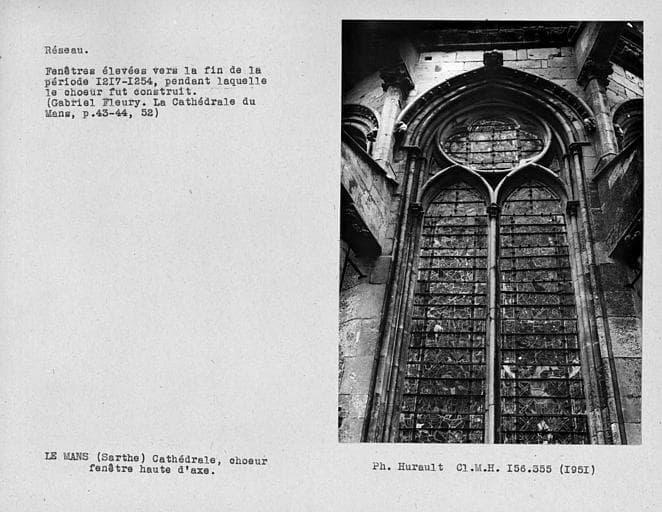 Réseau.
Fenêtres élevées vers la fin de la
période I2I7-I254, pendant laquelle
le choeur fut construit.
(Gabriel Fleury. La Cathédrale du
Mans, p.43-44, 52)
LE MANS (Sarthe) Cathédrale, choeur
fenêtre haute d'axe.
Ph. Hurault Cl.M.H. I56.355 (I95I)